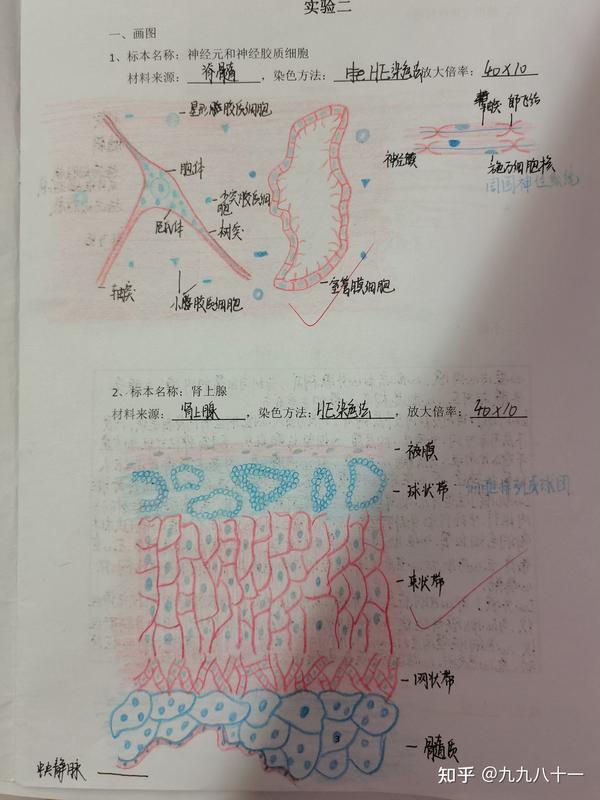 实验二
一、画图
1、标本名称：神经元和神经胶质细胞
材料来源：脊髓，染色方法：HE染色法 放大倍率：40×10
星形胶质细胞
郎飞结
轴突
胞体
神经膜
施万细胞核
周围神经系统
少突胶质细胞
尼氏体
树突
轴突
小胶质细胞
室管膜细胞
2、标本名称：肾上腺
材料来源：肾上腺，染色方法：HE染色法，放大倍率：40×10
被膜
球状带
细胞排列成球团
束状带
网状带
3
髓质
中央静脉
知乎 @九九八十一